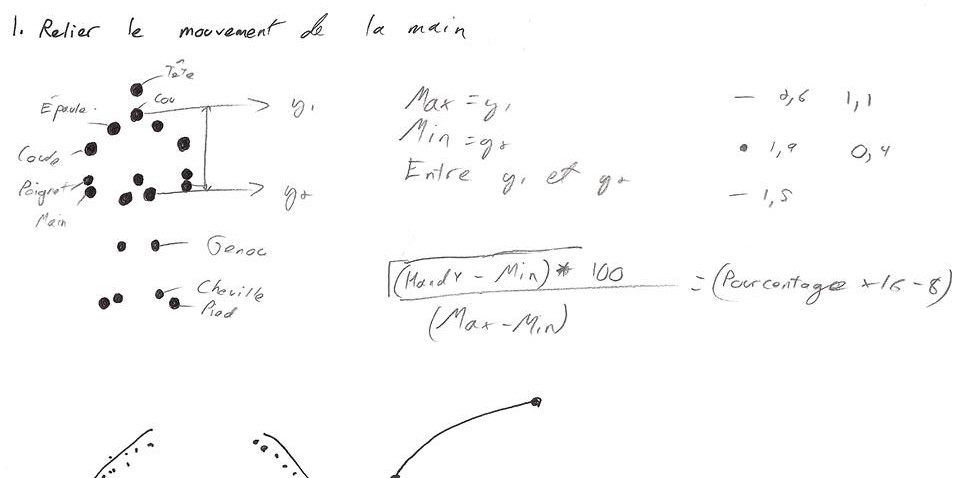 1. Relier le mouvement de la main
Tête
Cou
Épaule.
y₁
Coude
Poignet
Main
y₂
Genou
Cheville
Pied
Max = y₁
Min = y₂
Entre y₁ et y₂
— 2,6 1,1
• 1,9 0,4
— 1,5
(HandY - Min) * 100
(Max - Min)
= (Pourcentage × 16 - 8)